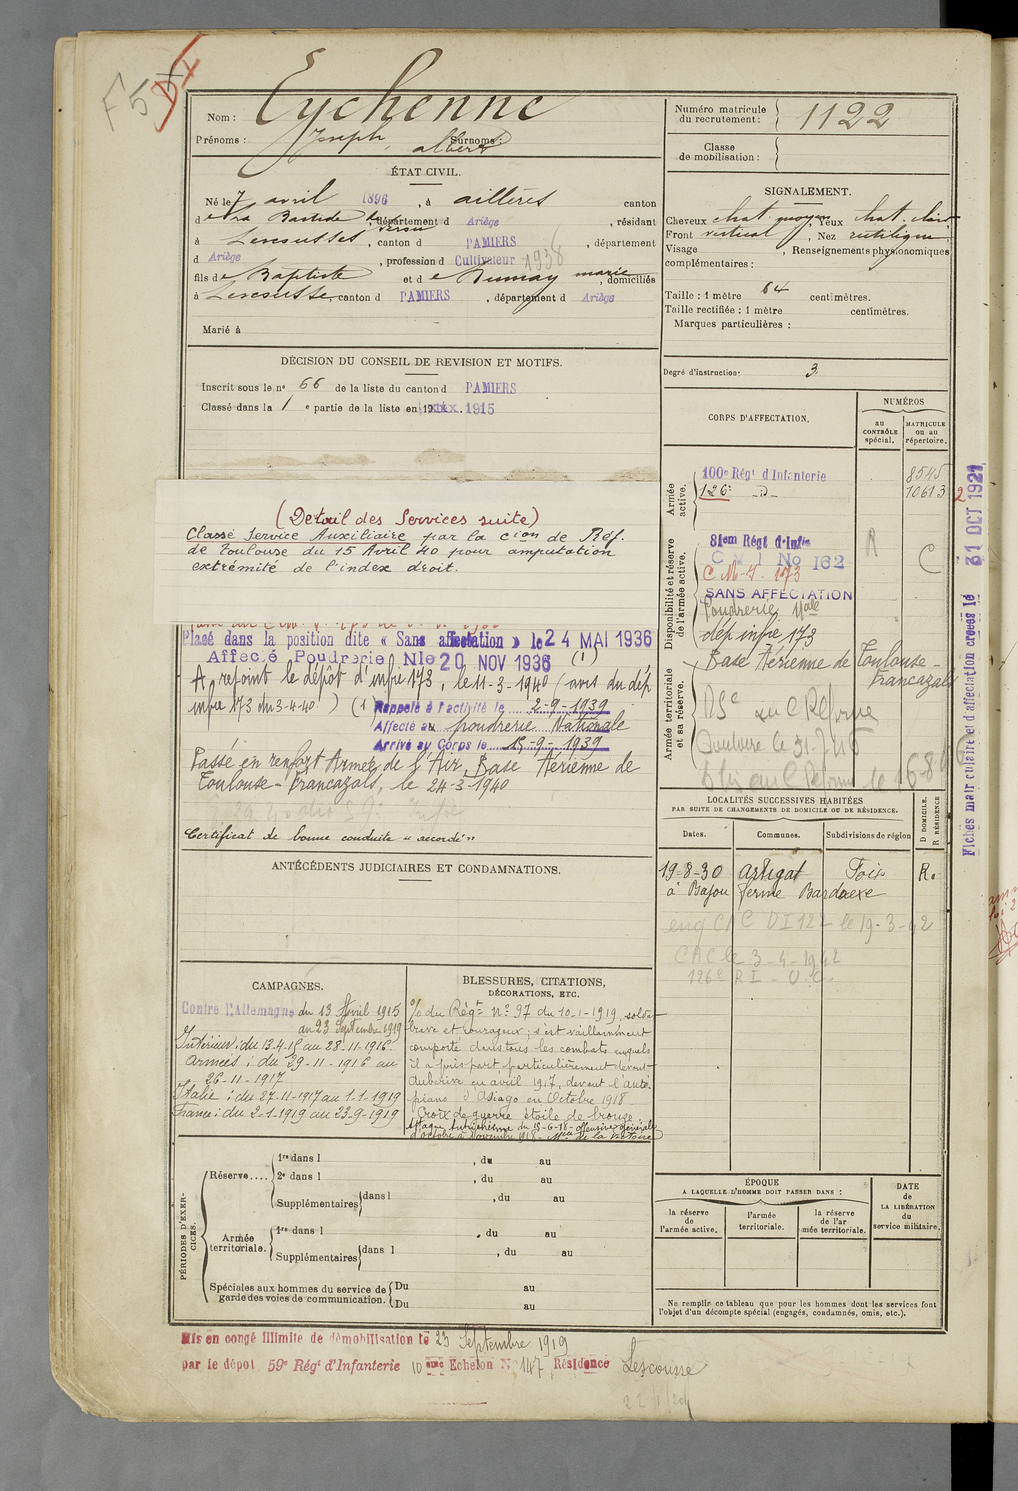 F 5
Nom : Eychenne
Prénoms : Joseph, albert Surnoms :
Numéro matricule du recrutement : 1122
Classe de mobilisation :
ÉTAT CIVIL.
Né le 7 avril 1896, à aillères canton
d e La Bastide département d Ariège, résidant
à Lescousses, canton d PAMIERS, département
d Ariège, profession d Cultivateur 1938
fils de Baptiste et de Dumay marie, domiciliés
à Lescousse, canton d PAMIERS, département d Ariège
Marié à
SIGNALEMENT.
Cheveux chat. moyen Yeux chat. clair
Front vertical, Nez rectiligne
Visage , Renseignements physionomiques
complémentaires :
Taille : 1 mètre 64 centimètres.
Taille rectifiée : 1 mètre centimètres.
Marques particulières :
Degré d'instruction : 3
DÉCISION DU CONSEIL DE REVISION ET MOTIFS.
Inscrit sous le n° 66 de la liste du canton d PAMIERS
Classé dans la 1 e partie de la liste en 1915
(Détail des Services suite)
Classé Service Auxiliaire par la cion de Réf.
de Toulouse du 15 Avril 40 pour amputation
extrémité de l'index droit.
Placé dans la position dite « Sans affectation » le 24 MAI 1936
Affecté Poudrerie Nle 20 NOV 1936 (1)
A rejoint le dépôt d'infie 173, le 11-3-1940 (avis du dép
infie 173 du 3-4-40) (1) Rappelé à l'activité le 2-9-1939
Affecté au poudrerie Nationale
Arrivé au Corps le 15-9-1939
Passé en renfort Armée de l'Air, Base Aérienne de
Toulouse-Francazals, le 24-3-1940
Certificat de bonne conduite « accordé »
ANTÉCÉDENTS JUDICIAIRES ET CONDAMNATIONS.
CORPS D'AFFECTATION.
NUMÉROS
au CONTRÔLE spécial.
MATRICULE ou au répertoire.
Armée active.
100e Régt d'Infanterie 8545
126e -D- 10613
2
Disponibilité et réserve de l'armée active.
81em Régt d'Infie
C M I No 162
C.M.I. 173
SANS AFFECTATION
Poudrerie Nale
dép infie 173
R
C
Armée territoriale et sa réserve.
Base Aérienne de Toulouse-
Francazals
Fiches matriculaire et d'affectation créées le 31 OCT 1921
LOCALITÉS SUCCESSIVES HABITÉES
PAR SUITE DE CHANGEMENTS DE DOMICILE OU DE RÉSIDENCE.
Dates.
Communes.
Subdivisions de région
D DOMICILE.
R RÉSIDENCE
19-8-30 Artigat Foix R.
à Bajou ferme Bardaexe
eng CAC DI 122 le 19-3-42
CAC le 3-4-1942
126e R I -
CAMPAGNES.
Contre l'Allemagne du 13 Avril 1915
au 23 Septembre 1919
Intérieur : du 13-4-15 au 28-11-1916
Armées : du 29-11-1916 au
26-11-1917
Italie : du 27-11-1917 au 1-1-1919
France : du 2-1-1919 au 23-9-1919
BLESSURES, CITATIONS,
DÉCORATIONS, ETC.
% du Régt N° 97 du 10-1-1919, soldat
brave et courageux ; s'est vaillamment
comporté dans tous les combats auxquels
il a pris part particulièrement devant
Auberive en avril 1917, devant l'Alto-
piano d'Asiago en Octobre 1918-
Croix de guerre étoile de bronze.
Attaque Autrichienne du 15-6-18- offensive générale
d'octobre à Novembre 1918- Mlle de la Victoire
PÉRIODES D'EXERCICES.
Réserve....
1re dans l , du au
2e dans l , du au
Supplémentaires dans l , du au
Armée territoriale.
1re dans l , du au
Supplémentaires dans l , du au
Spéciales aux hommes du service de garde des voies de communication.
Du au
Du au
ÉPOQUE
A LAQUELLE L'HOMME DOIT PASSER DANS :
la réserve de l'armée active.
l'armée territoriale.
la réserve de l'armée territoriale.
DATE de LA LIBÉRATION du service militaire.
Ne remplir ce tableau que pour les hommes dont les services font
l'objet d'un décompte spécial (engagés, condamnés, omis, etc.).
Mis en congé illimité de démobilisation le 23 Septembre 1919
par le dépôt 59e Régt d'Infanterie 10 ème Echelon N° 147, Résidence Lescousse